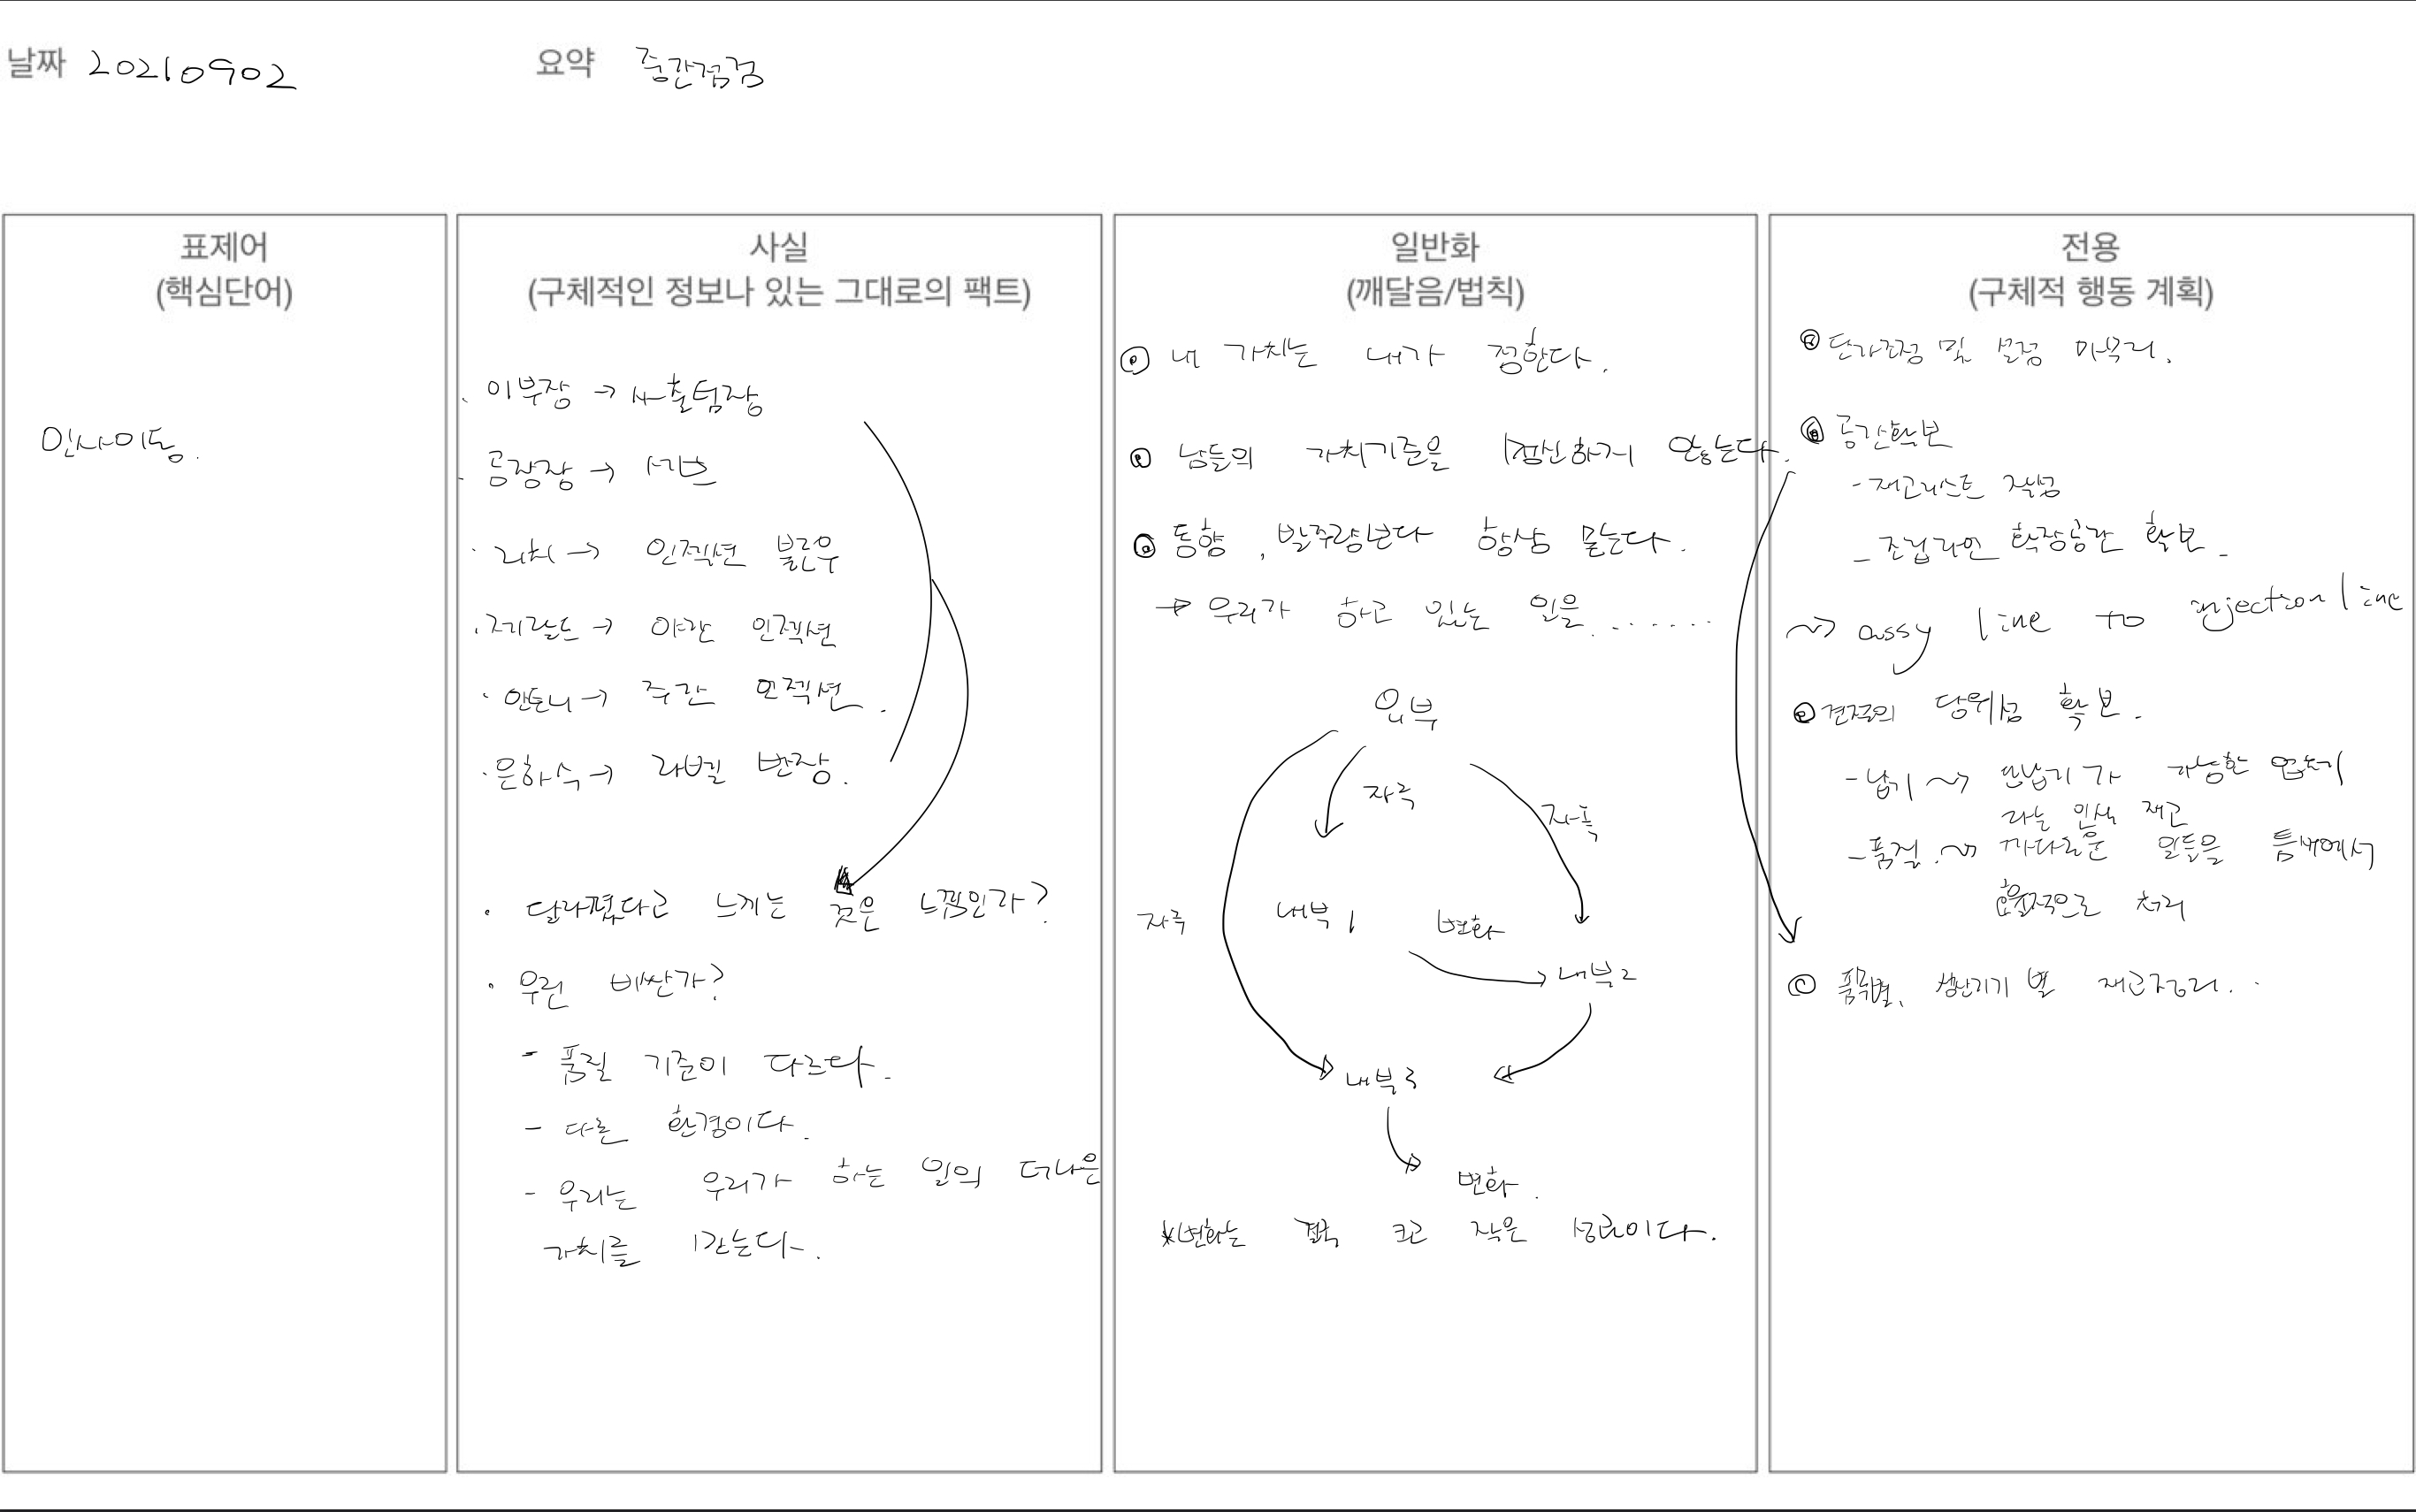 날짜 20210902
요약 중간점검
표제어
(핵심단어)
인사이동.
사실
(구체적인 정보나 있는 그대로의 팩트)
· 이부장 → 사출팀장
· 공장장 →
· → 인젝션 블로우
· → 야간 인젝션
· 안토니 → 주간 인젝션.
· 은하수 → 라벨 반장.
· 달라졌다고 느끼는 것은 느낌인가?
· 우린 비싼가?
- 품질 기준이 다르다.
- 다른 환경이다.
- 우리는 우리가 하는 일의 더나은
가치를 만든다.
일반화
(깨달음/법칙)
내 가치는 내가 정한다.
남들의 가치기준을 맹신하지 않는다.
동향, 발주량보다 항상 묻는다.
→ 우리가 하고 있는 일을.......
외부
자극
자극
자극
내부1
변화
내부2
내부3
변화.
*변화는 결국 크고 작은 성공이다.
전용
(구체적 행동 계획)
단가조정 및 설정 미루기.
공간확보
- 재고리스트 작성
- 조립라인 확장공간 확보.
~> assy line to injection line
견적의 당위성 확보.
- 납기 ~> 단납기가 가능한 업체
라는 인식 제고
- 품질. ~> 까다로운 일들을 틈새에서
효율적으로 처리
품목별, 생산기기 별 재고정리..